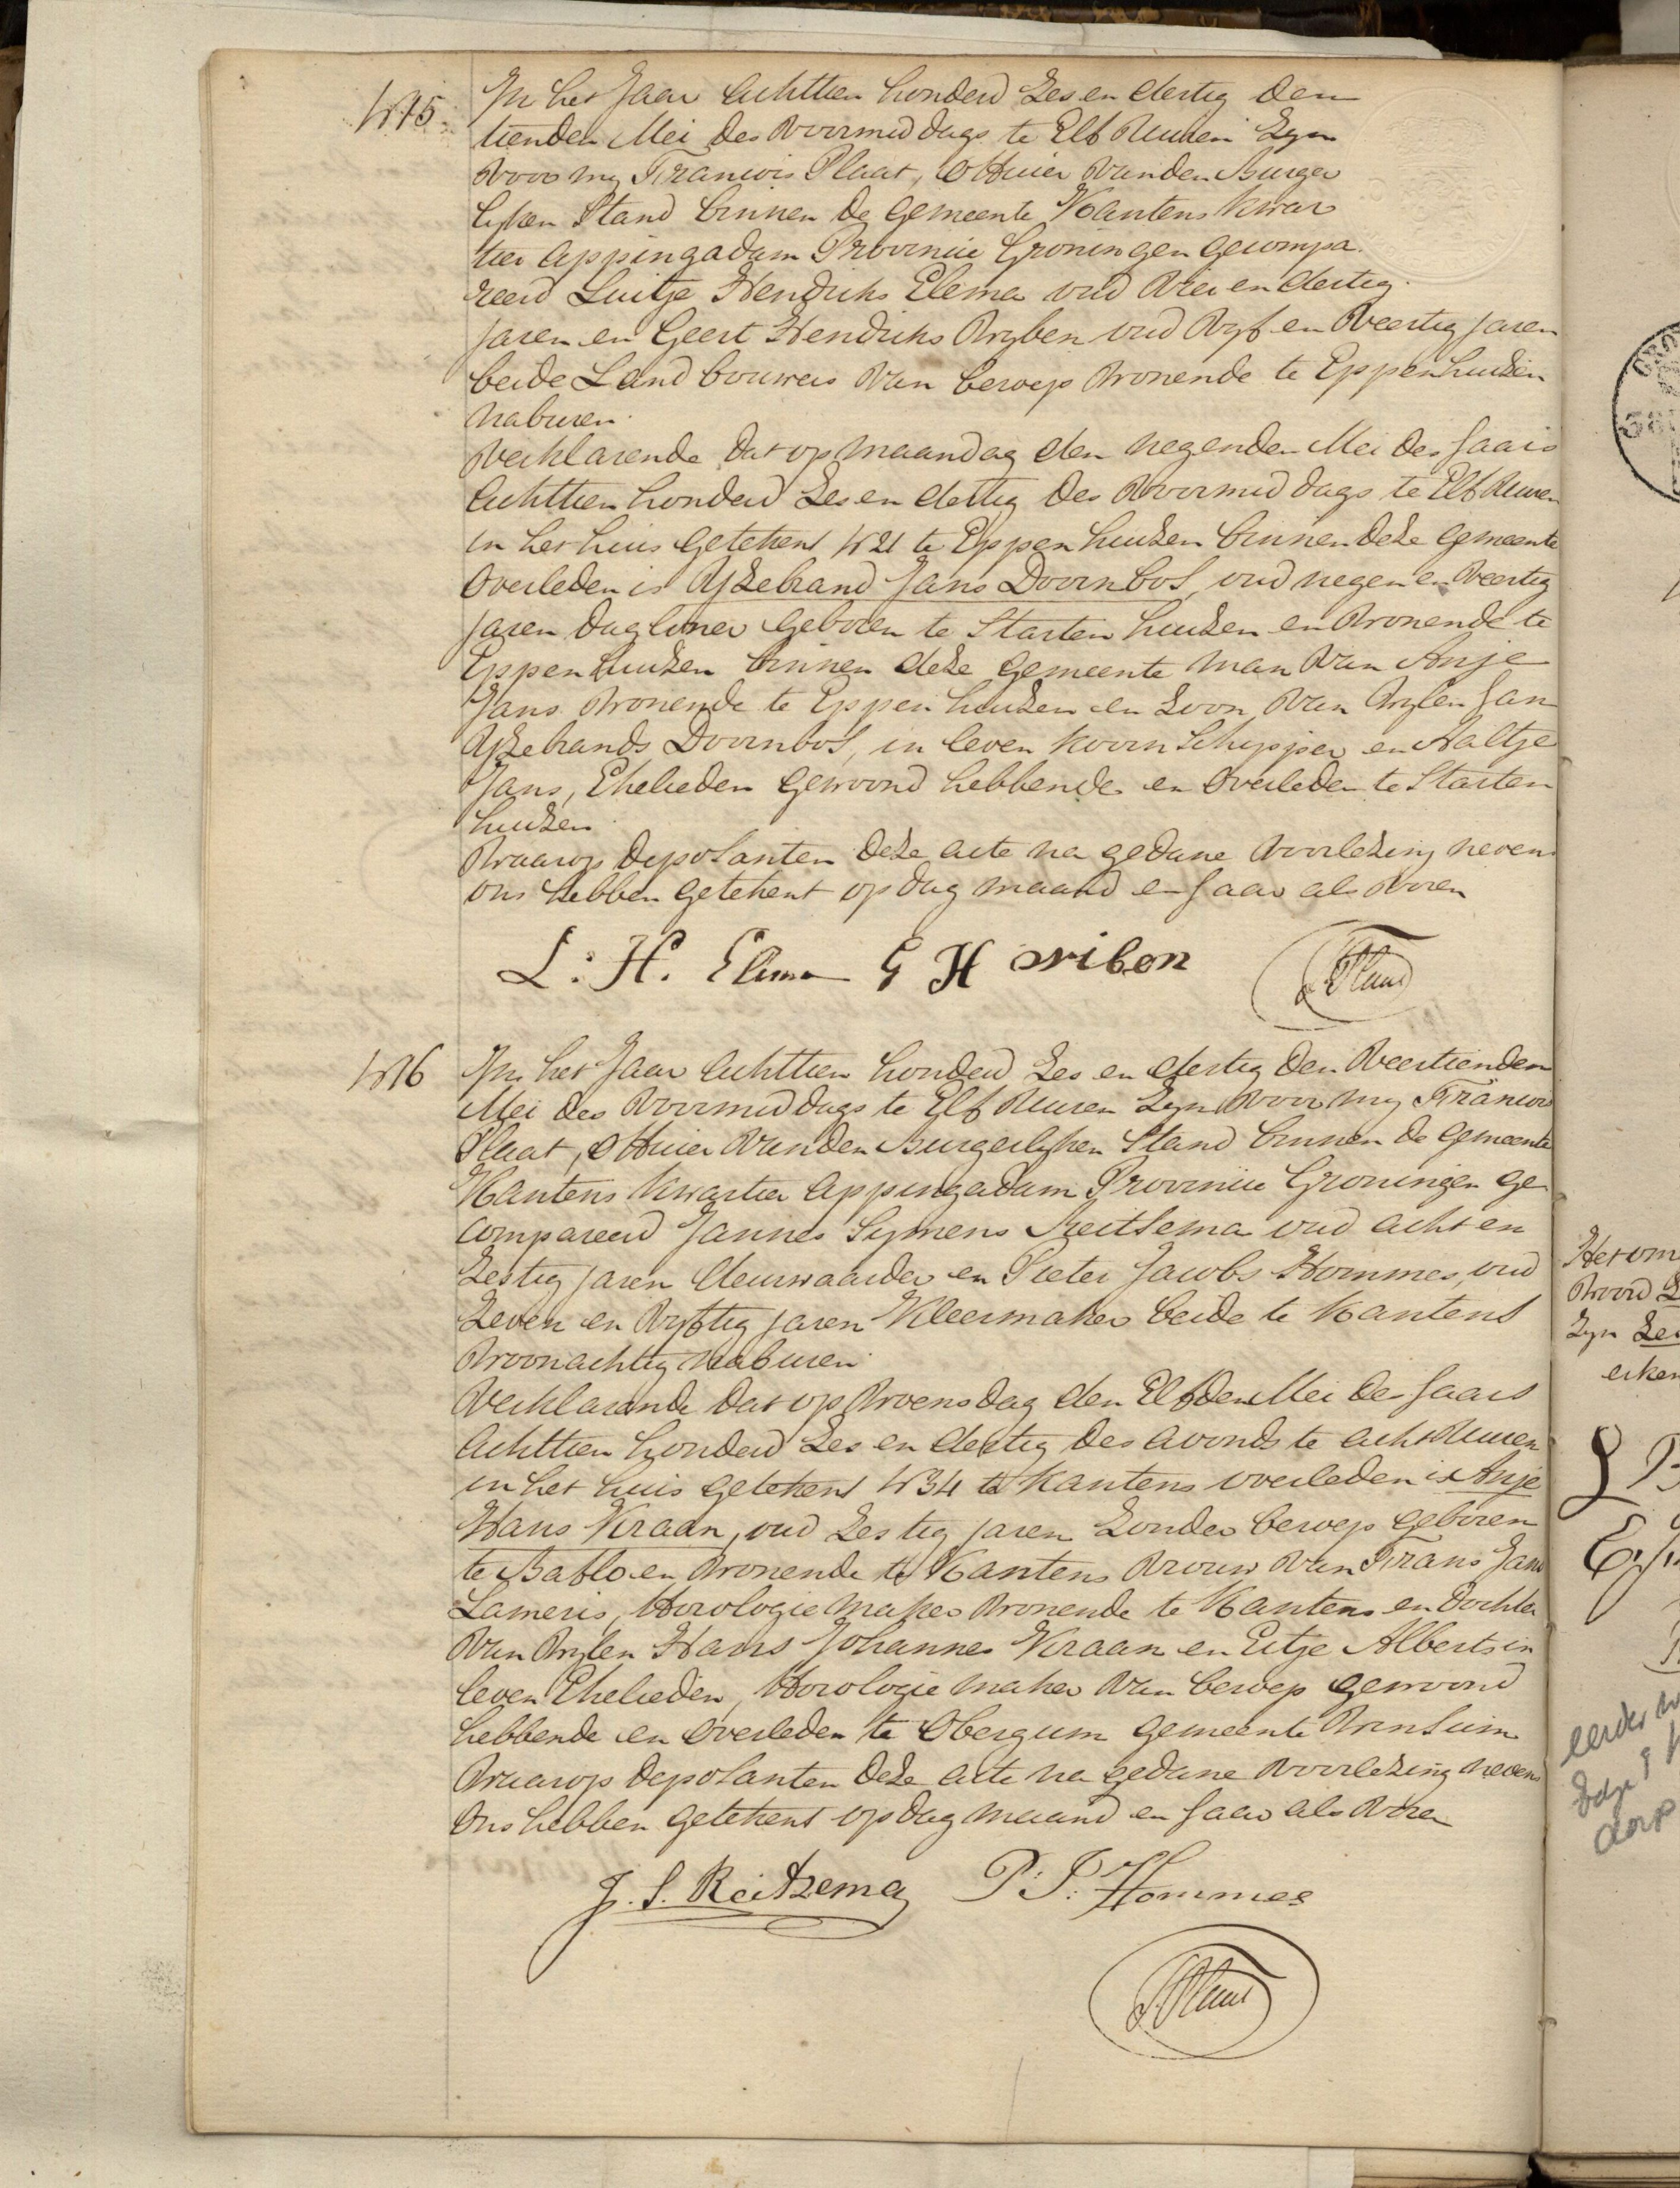 N 15.
In het Jaar Achttien honderd Zes en dertig den
tienden Mei des Voormiddags te Elf Uuren Zyn
Voor my Francois Plaat, Officier van den Burger
lyken Stand binnen de Gemeente Kantens Kwar
tier Appingadam Provincie Groningen gecompa
reerd Luitje Hendriks Elema oud Drie en dertig
Jaren en Geert Hendriks Wryben oud Vyf en Veertig Jaren
beide Landbouwers van beroep Wonende te Eppenhuizen
Naburen.
Verklarende dat op Maandag den negenden Mei des Jaars
Achttien honderd Zes en dertig des Voormiddags te Elf Uuren
in het huis getekent N 21 te Eppenhuizen binnen deze Gemeente
Overleden is Yzebrand Jans Doornbos, oud negen en Veertig
Jaren dagloner Geboren te Startenhuizen en Wonende te
Eppenhuizen binnen deze Gemeente Man van Anje
Jans Wonende te Eppenhuizen en Zoon van Wylen Jan
Yzebrands Doornbos, in leven Koornschipper en Aaltje
Jans, Ehelieden gewoond hebbende en overleden te Starten
huizen.
Waarop deposanten deze acte na gedane Voorlezing nevens
ons hebben getekent op dag maand en Jaar als Voren
L: H. Elema G H wriben
F Plaat
N 16
In het Jaar Achttien honderd Zes en dertig den Veertienden
Mei des Voormiddags te Elf Uuren Zyn Voor my Francois
Plaat, Officier van den Burgerlyken Stand binnen de Gemeente
Kantens Kwartier Appingadam Provincie Groningen ge
compareerd Jannes Symens Reitsema oud acht en
Zestig Jaren deurwaarder en Pieter Jacobs Hommes, oud
Zeven en Vyftig Jaren Kleermaker beide te Kantens
Woonachtig Naburen.
Verklarende dat op Woensdag den Elfden Mei des Jaars
Achttien honderd Zes en dertig des avonds te acht Uuren
in het huis getekent N 34 te Kantens overleden is Anje
Hans Kraan, oud Zestig jaren Zonder beroep geboren
te Baflo en Wonende te Kantens Vrouw van Frans Jans
Lameris, Horologie maker Wonende te Kantens en Dochter
van Wylen Hans Johannes Kraan en Eitje Alberts in
leven Ehelieden, Horologie maker van beroep gewoond
hebbende en Overleden te Obergum Gemeente Winsum
Waarop deposanten deze acte na gedane Voorlezing nevens
Ons hebben getekent op dag maand en Jaar als Voren
J. S. Reitzema P: J: Hommes
F Plaat
Het om
Woord
Zyn
erken
eerder
dorp